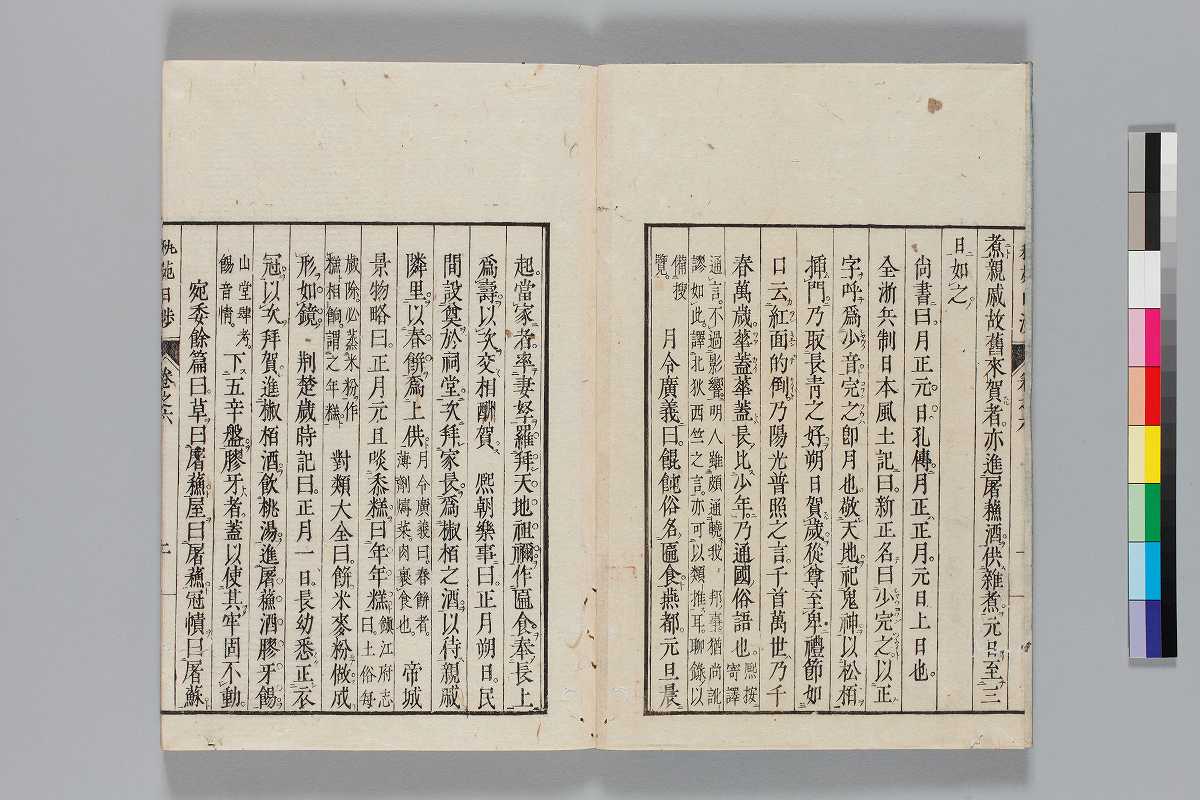 煮親戚故舊來賀者亦進屠蘓酒供雜煮元日至三
日如之
尙書曰月正元日孔傳月正正月元日上日也
全淅兵制日本風土記曰新正名曰少完之以正
字呼爲少音完之卽月也敬天地祀鬼神以松栢
揷門乃取長靑之好朔日賀歲從尊至卑禮節如
口云紅面的倒乃陽光普照之言千首萬世乃千
春萬歲華蓋華蓋長比少年乃通國俗語也 熈按寄譯
通言不過影響明人雖頗通曉我邦事猶尙訛
謬如此譯北狄西竺之言亦可以類推耳聊錄以
備搜覽 月令廣義曰餛飩俗名匾食燕都元旦晨
起當家者率妻孥羅拜天地祖禰作匾食奉長上
爲壽以次交相酬賀 熈朝樂事曰正月朔日民
間設奠於祠堂次拜家長爲椒栢之酒以待親戚
隣里以春餅爲上供 月令廣義曰春餅者薄劑溥菜肉裹食也 帝城
景物略曰正月元旦啖黍糕曰年年糕 鎭江府志曰土俗每
歲除必蒸米粉作糕相餉謂之年糕 對類大全曰餅米麥粉做成
形如鏡 荆楚歲時記曰正月一日長幼悉正衣
冠以次拜賀進椒栢酒飮桃湯進屠蘓酒膠牙餳
山堂肆考餳音情 下五辛盤膠牙者蓋以使其牢固不動
宛委餘篇曰草曰屠蘓屋曰屠蘓冠幘曰屠蘇
卷之六